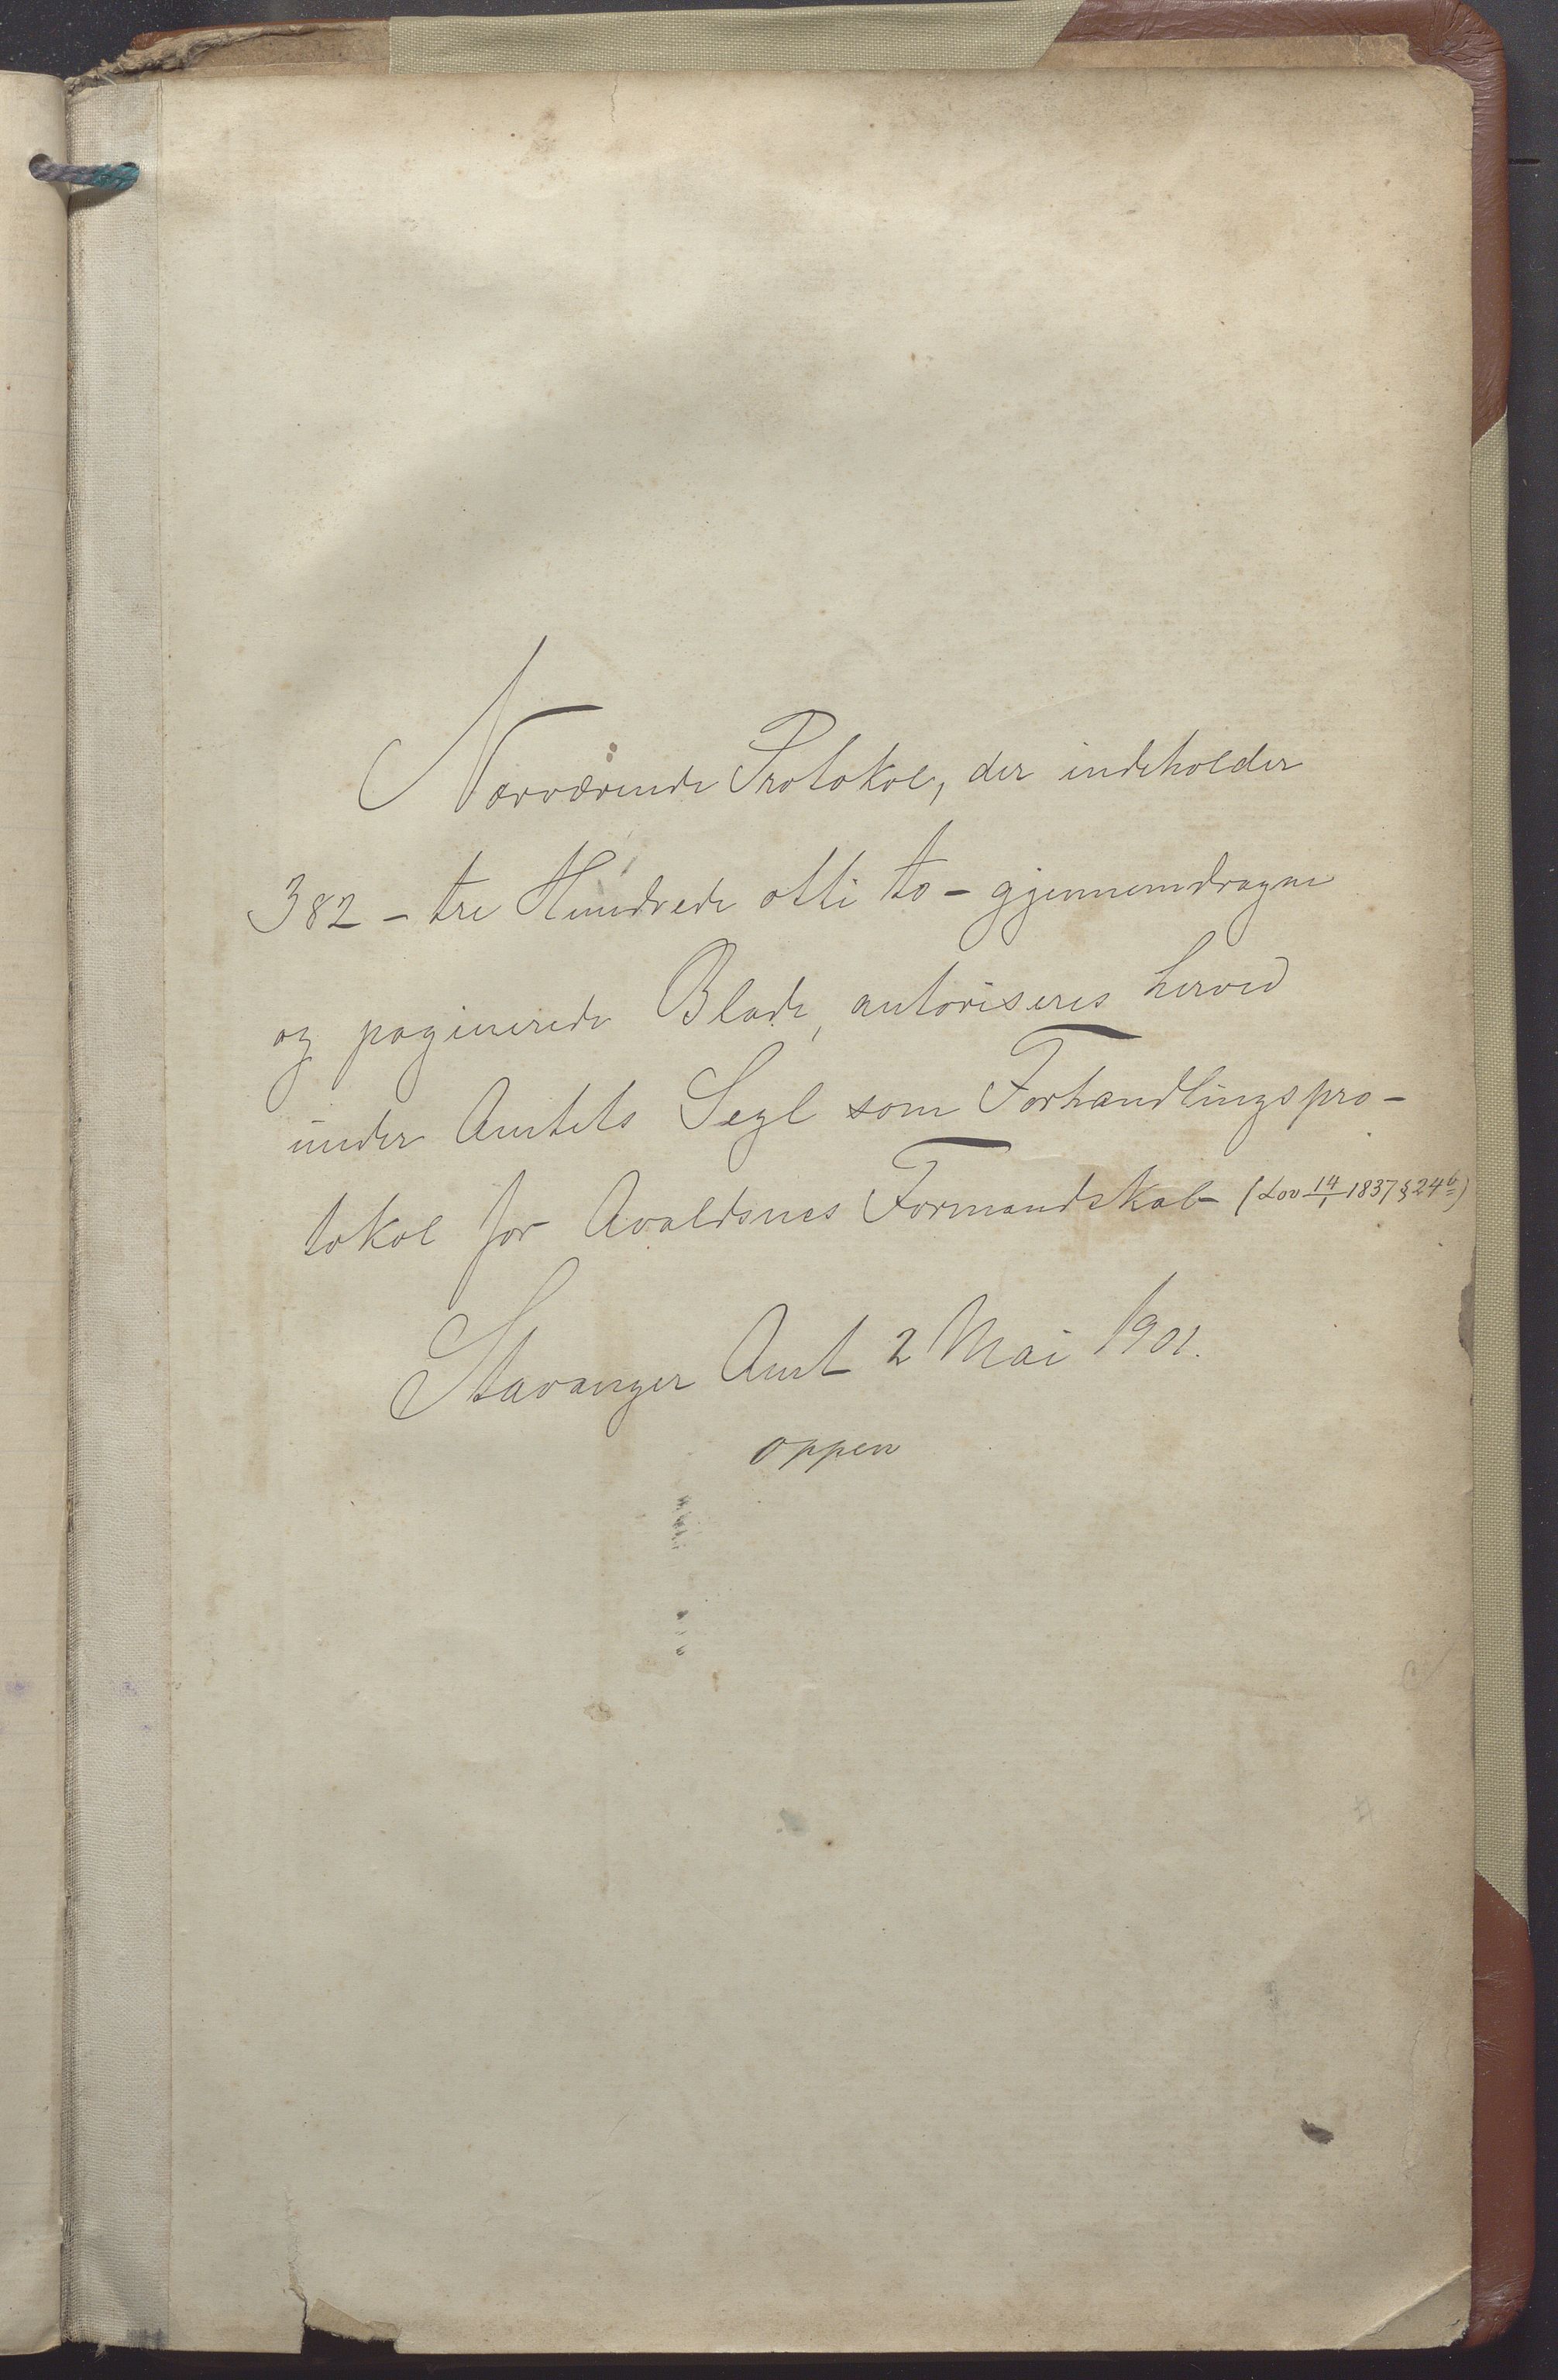 Nærværende Protokol, der indeholder
382 – tre Hundrede otti to – gjennemdragne
og paginerede Blade, autoriseres herved
under Amtets Segl som Forhandlingspro-
tokol for Avaldsnes Formandskab (Lov 14/1 1837 § 24 b)
Stavanger Amt 2 Mai 1901.
Oppen